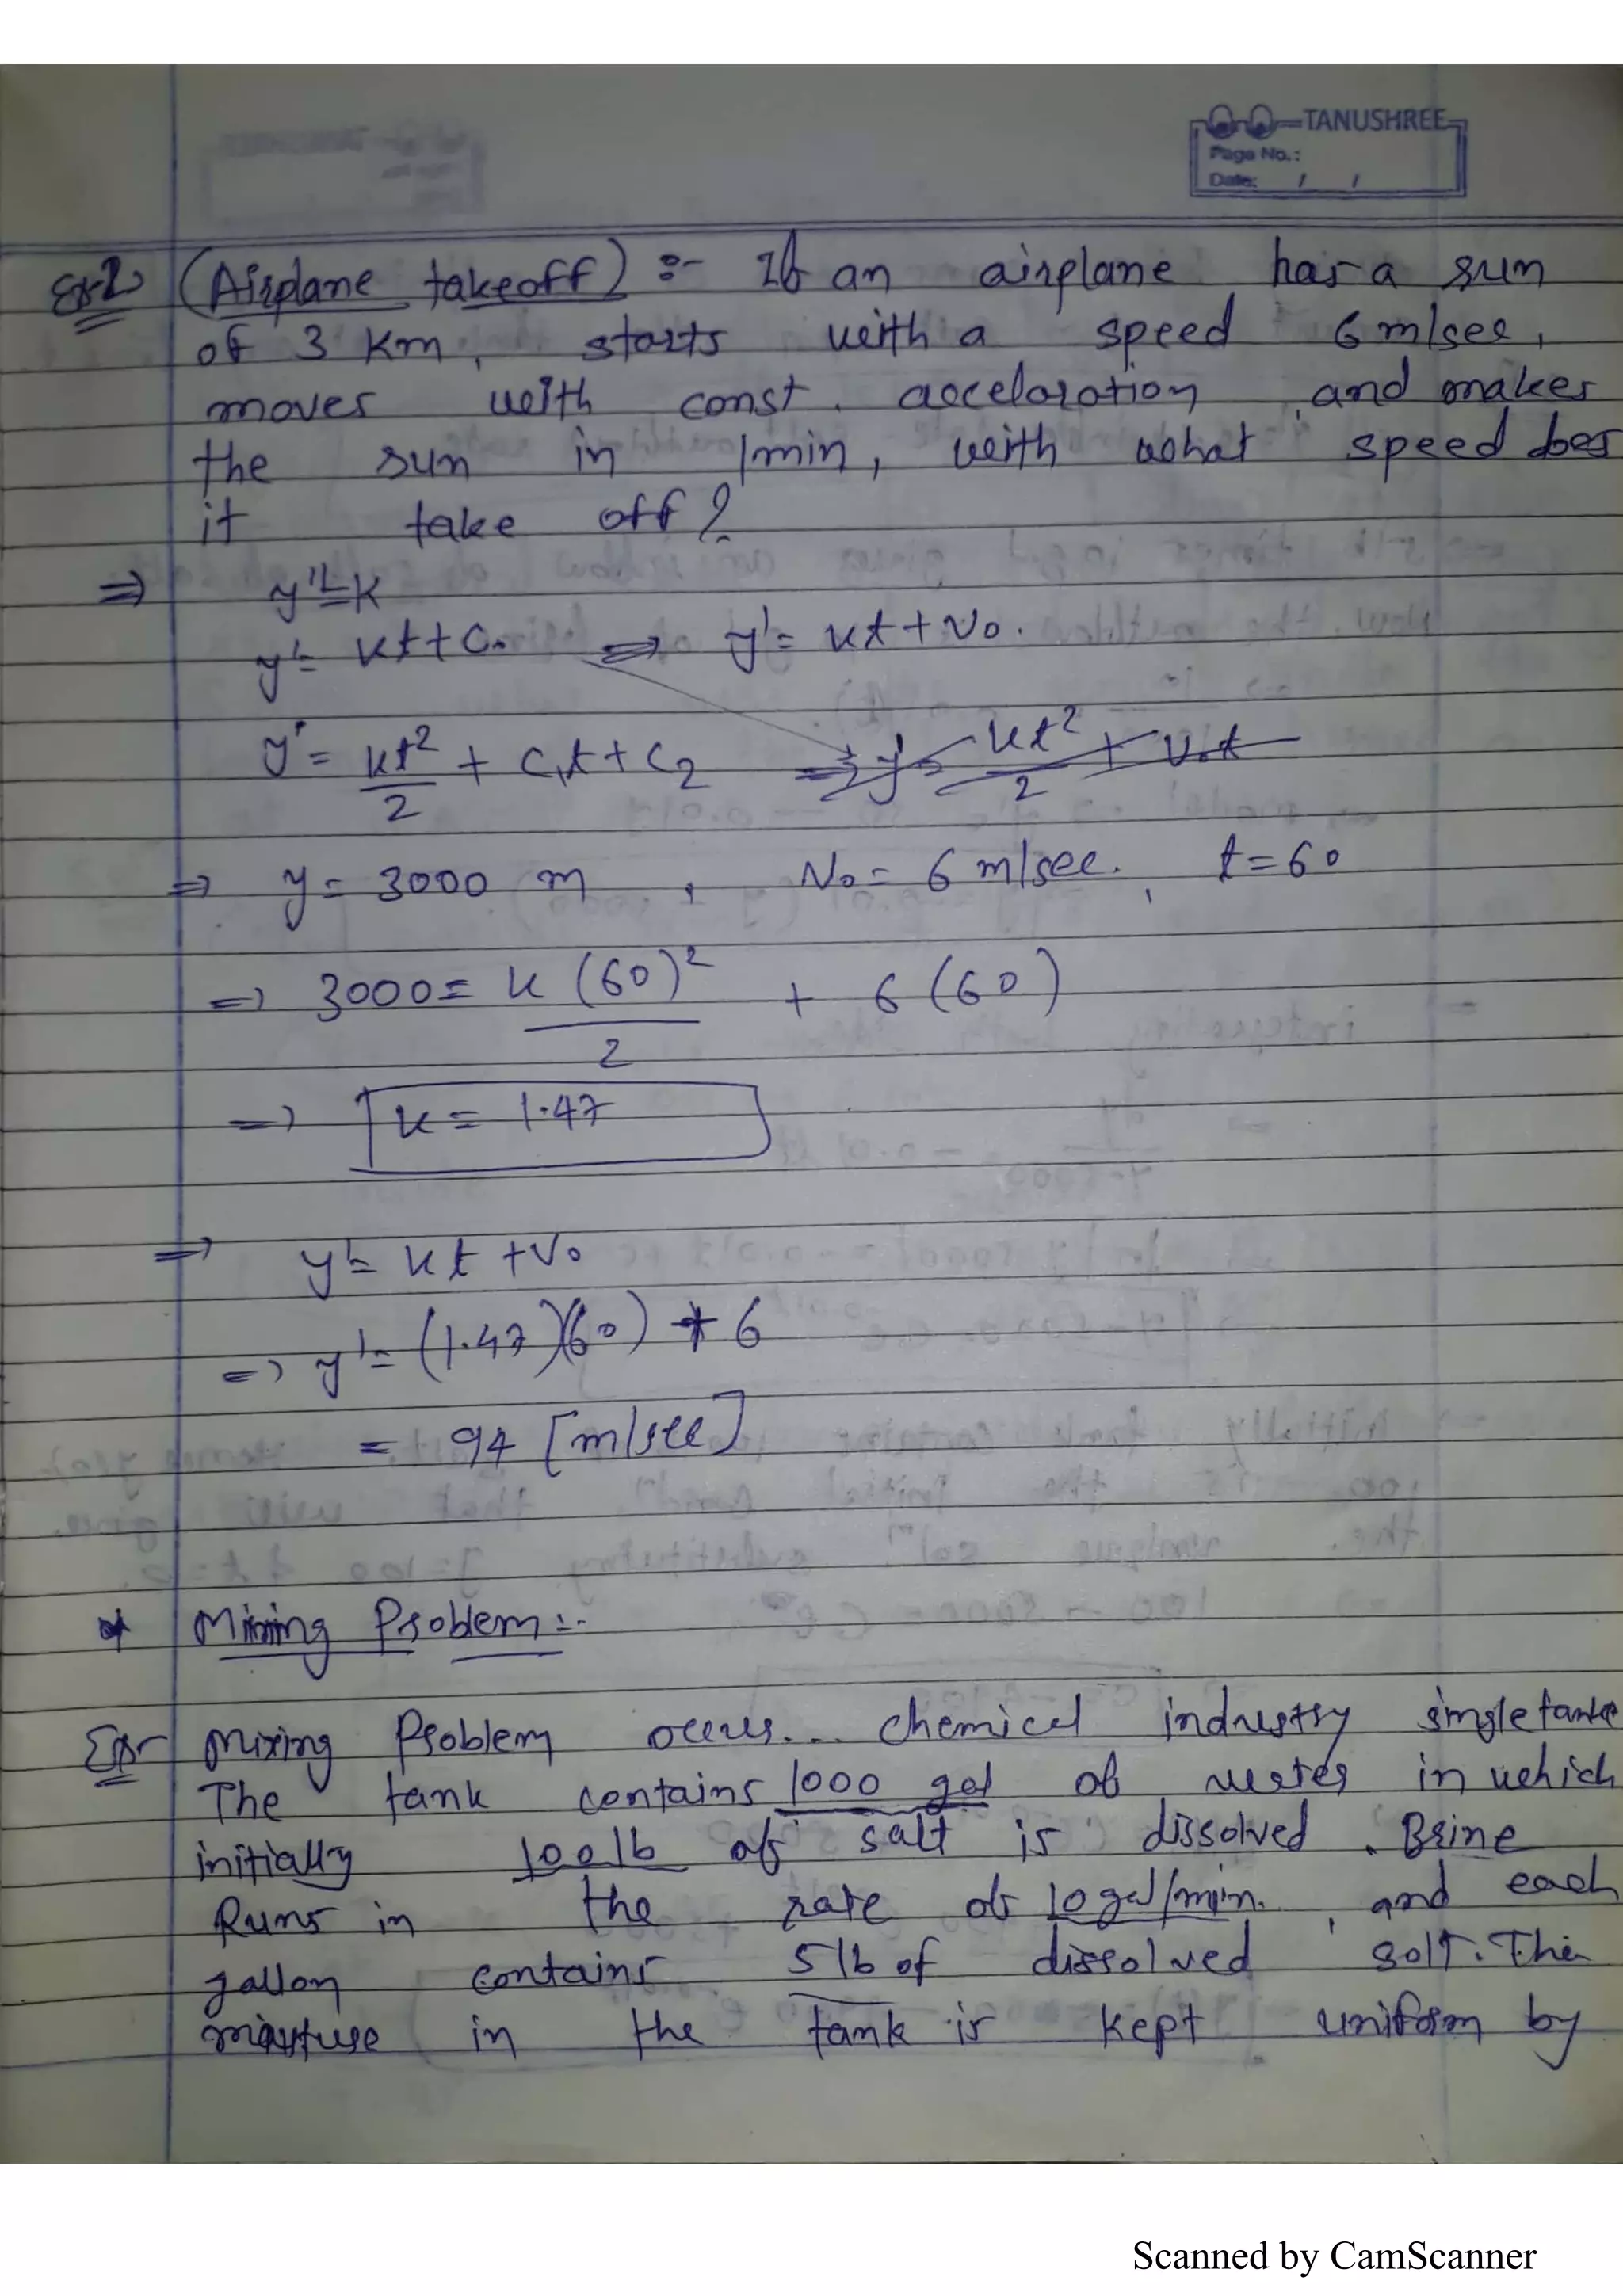 TANUSHREE
Page No.:
Date: / /
Ex-2 (Airplane takeoff) :- If an airplane has a run
of 3 Km, starts with a speed 6 m/sec,
moves with const. acceloration, and makes
the run in 1min, with what speed does
it take off?
⇒ y''=K
y'= kt+C. ⇒ y'= kt+V₀.
y = kt²/2 + C₁t + C₂ ⇒ y = kt²/2 + V₀t
⇒ y = 3000 m, V₀ = 6 m/sec., t=60
⇒ 3000 = k (60)²/2 + 6 (60)
⇒ k = 1.47
⇒ y'= kt +V₀
⇒ y'= (1.47)(60) + 6
= 94 [m/sec]
* Mixing Problem :-
Ex- Mixing Problem occurs... chemical industry single tank
The tank contains 1000 gal of water in which
initially 100lb of salt is dissolved. Brine
Runs in the rate of 10 gal/min., and each
gallon contains 5 lb of dissolved salt. The
mixture in the tank is kept uniform by
Scanned by CamScanner